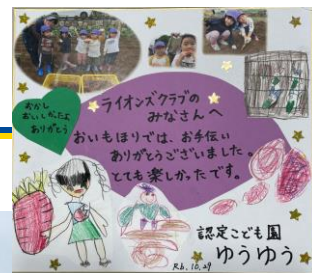 おかし
おいしかったよ
ありがとう
ライオンズクラブの
みなさんへ
おいもほりでは、お手伝い
ありがとうございました。
とても楽しかったです。
認定こども園
ゆうゆう
R6.10.29